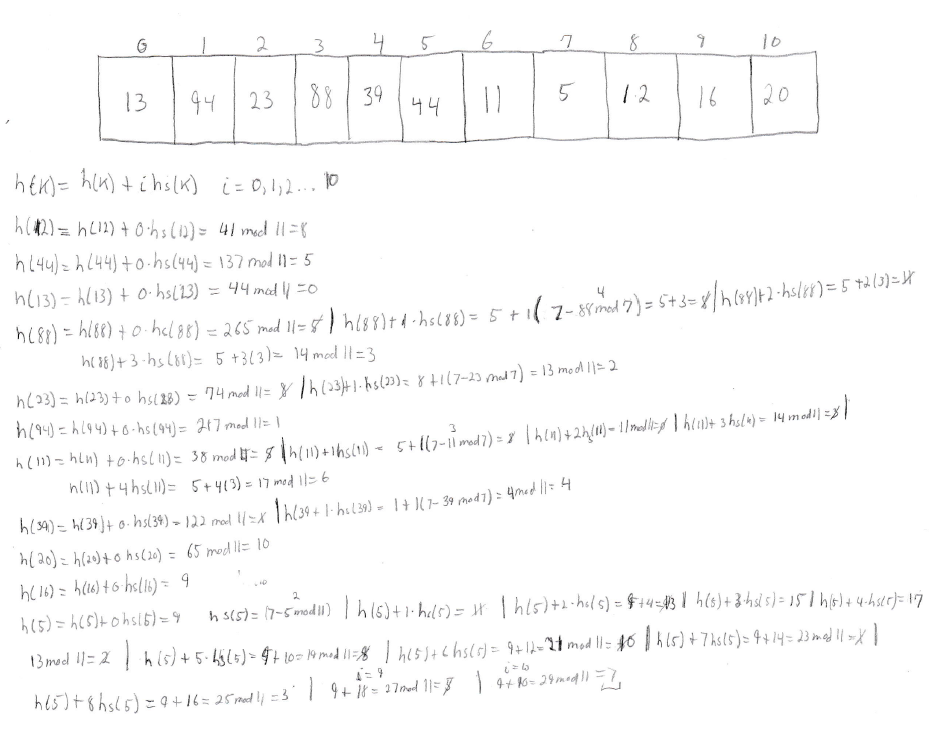 0 1 2 3 4 5 6 7 8 9 10
13 94 23 88 39 44 11 5 12 16 20
h(K) = h(K) + i hs(K) i = 0,1,2... 10
h(12) = h(12) + 0·hs(12) = 41 mod 11 = 8
h(44) = h(44) + 0·hs(44) = 137 mod 11 = 5
h(13) = h(13) + 0·hs(13) = 44 mod 11 = 0
h(88) = h(88) + 0·hs(88) = 265 mod 11 = 5 | h(88) + 1·hs(88) = 5 + 1(7-88 mod 7) = 5+3 = 8 | h(88) + 2·hs(88) = 5 + 2(3) = 11
h(88) + 3·hs(88) = 5 + 3(3) = 14 mod 11 = 3
h(23) = h(23) + 0 hs(23) = 74 mod 11 = 8 | h(23) + 1·hs(23) = 8 + 1(7-23 mod 7) = 13 mod 11 = 2
h(94) = h(94) + 0·hs(94) = 287 mod 11 = 1
h(11) = h(11) + 0·hs(11) = 38 mod 11 = 5 | h(11) + 1hs(11) = 5 + 1(7-11 mod 7) = 8 | h(11) + 2hs(11) = 11 mod 11 = 0 | h(11) + 3hs(11) = 14 mod 11 = 3 |
h(11) + 4hs(11) = 5 + 4(3) = 17 mod 11 = 6
h(39) = h(39) + 0·hs(39) = 122 mod 11 = 1 | h(39 + 1·hs(39) = 1 + 1(7-39 mod 7) = 4 mod 11 = 4
h(20) = h(20) + 0 hs(20) = 65 mod 11 = 10
h(16) = h(16) + 0·hs(16) = 9
h(5) = h(5) + 0hs(5) = 9 hs(5) = (7-5 mod 11) 2 | h(5) + 1·hs(5) = 11 | h(5) + 2·hs(5) = 9+4 = 13 | h(5) + 3·hs(5) = 15 | h(5) + 4·hs(5) = 17
13 mod 11 = 2 | h(5) + 5·hs(5) = 9 + 10 = 19 mod 11 = 8 | h(5) + 6hs(5) = 9 + 12 = 21 mod 11 = 10 | h(5) + 7hs(5) = 9 + 14 = 23 mod 11 = 1 |
h(5) + 8hs(5) = 9 + 16 = 25 mod 11 = 3 | i = 9 9 + 18 = 27 mod 11 = 5 | i = 10 9 + 20 = 29 mod 11 = 7